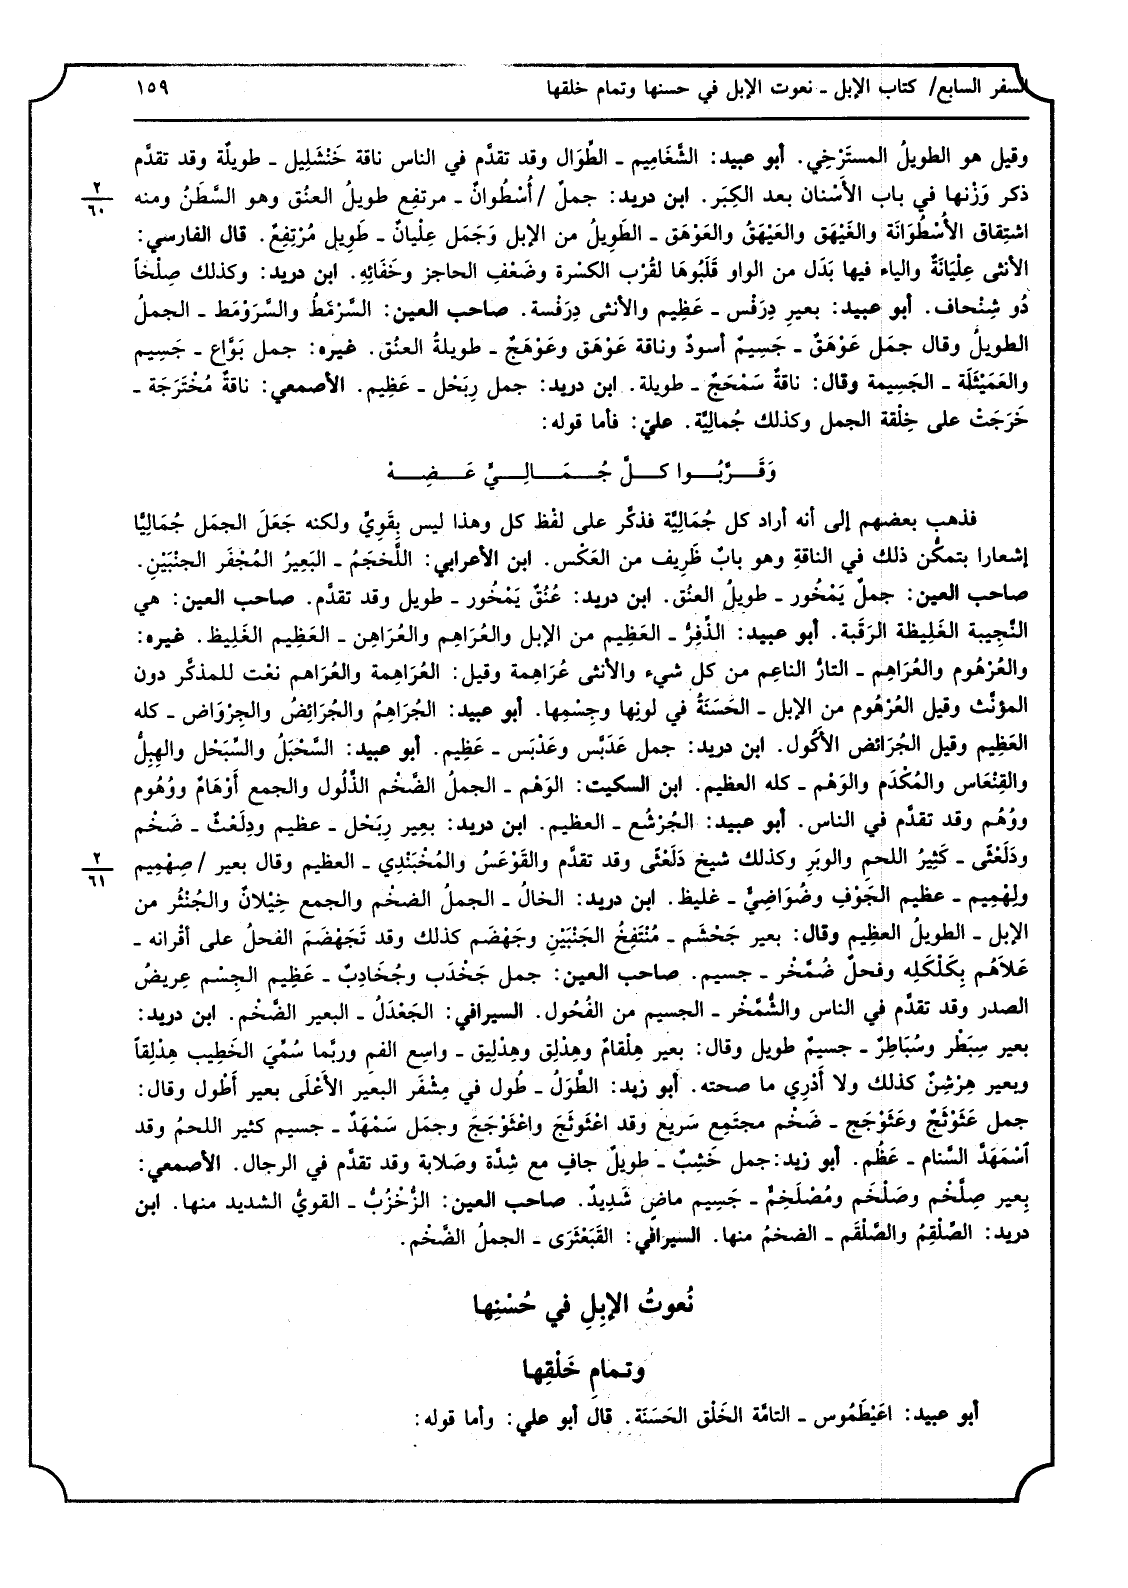 السفر السابع/ كتاب الإبل ـ نعوت الإبل في حسنها وتمام خلقها ١٥٩
وقيل هو الطويلُ المسترْخِي. أبو عبيد: الشَّغَامِيم ـ الطِّوَال وقد تقدَّم في الناس ناقة خَنْشَلِيل ـ طويلَة وقد تقدَّم
ذكر وَزْنها في باب الأَسْنان بعد الكِبَر. ابن دريد: جملٌ /أُسْطُوانٌ ـ مرتفِع طويلُ العنُق وهو السَّطَنُ ومنه
٢
٦٠
اشتِقاق الأُسْطُوَانَة والغَيْهَق والعَيْهَقُ والعَوْهَق ـ الطَويلُ من الإبل وَجَمَل عِلْيانٌ ـ طَويل مُرْتِفِعٌ. قال الفارسي:
الأنثى عِلْيَانَةٌ والياء فيها بَدَل من الواو قَلَبُوهَا لقُرْب الكسْرة وضَعْفِ الحاجز وخَفَائِهِ. ابن دريد: وكذلك صِلْخاً
ذُو شِنْحاف. أبو عبيد: بعير دِرَفْس ـ عَظِيم والأنثى دِرَفْسة. صاحب العين: السَّرْمَطُ والسَّرَوْمَط ـ الجملُ
الطويلُ وقال جمَل عَوْهَقٌ ـ جَسِيمٌ أسودُ وناقة عَوْهَق وعَوْهَجٌ ـ طويلةُ العنُق. غيره: جمل بَوَّاع ـ جَسِيم
والعَمَيْثَلَة ـ الجَسِيمة وقال: ناقةٌ سَمْحَجٌ ـ طويلة. ابن دريد: جمل رِبَحْل ـ عَظِيم. الأصمعي: ناقةٌ مُخْتَرَجَة ـ
خَرَجَتْ على خِلْقة الجمل وكذلك جُمالِيَّة. عليّ: فأما قوله:
وَقَــرَّبُــوا كــلَّ جُــمَــالِــيٍّ عَــضِــهْ
فذهب بعضهم إلى أنه أراد كل جُمَالِيَّة فذكَّر على لفْظ كل وهذا ليس بِقَوِيٍّ ولكنه جَعَلَ الجمَل جُمَالِيًّا
إشعارا بتمكُّن ذلك في الناقةِ وهو بابٌ ظَرِيف من العَكْس. ابن الأعرابي: اللَّخجَمُ ـ البَعِيرُ المُجْفَر الجنْبَيْنِ.
صاحب العين: جملٌ يَمْخُور ـ طويلُ العنُق. ابن دريد: عُنُقٌ يَمْخُور ـ طويل وقد تقدَّم. صاحب العين: هي
النَّجِيبة الغَلِيظة الرَقَبة. أبو عبيد: الذَّفِرُّ ـ العَظِيم من الإبل والعُرَاهِم والعُرَاهِن ـ العَظِيم الغَلِيظ. غيره:
والعُرْهُوم والعُرَاهِم ـ التارُّ الناعِم من كل شيء والأنثى عُرَاهِمة وقيل: العُرَاهِمة والعُرَاهم نعْت للمذكَّر دون
المؤنَّث وقيل العُرْهُوم من الإبل ـ الحَسَنَةُ في لونِها وجِسْمِها. أبو عبيد: الجُرَاهِمُ والجُرَائِضُ والجِرْوَاض ـ كله
العَظِيم وقيل الجُرَائض الأَكُول. ابن دريد: جمل عَدَبَّس وعَدْبَس ـ عَظِيم. أبو عبيد: السَّحْبَلُ والسِّبَحْل والهِبِلُّ
والقِنْعَاس والمُكْدَم والوَهْم ـ كله العظيم. ابن السكيت: الوَهْم ـ الجملُ الضَّخْم الذَّلُول والجمع أَوْهَامٌ ووُهُوم
ووُهُم وقد تقدَّم في الناس. أبو عبيد: الجُرْشُع ـ العظيم. ابن دريد: بعِير رِبَحْل ـ عظيم ودِلَعْثٌ ـ ضَخْم
ودَلَعْثَى ـ كَثِيرُ اللحمِ والوبَرِ وكذلك شيخ دَلَعْثَى وقد تقدَّم والقَوْعَسُ والمُخْبَنْدِي ـ العظيم وقال بعير /صِهْمِيم
٢
٦١
ولِهْمِيم ـ عظيم الجَوْفِ وضُوَاضِيٌّ ـ غليظ. ابن دريد: الخالُ ـ الجملُ الضخْم والجمع خِيْلانٌ والجُنْثُر من
الإبل ـ الطويلُ العظِيم وقال: بعير جَحْشَم ـ مُنْتَفِخُ الجَنْبَيْنِ وجَهْضَم كذلك وقد تَجَهْضَمَ الفحلُ على أقْرانه ـ
عَلاَهُم بِكَلْكَلِه وفحلٌ ضُمَّخْر ـ جسيم. صاحب العين: جمل جَخْدَب وجُخَادِبٌ ـ عَظِيم الجِسْم عِريضُ
الصدر وقد تقدَّم في الناس والشُّمَّخْر ـ الجسيم من الفُحُول. السيرافي: الجَعْدَلُ ـ البعير الضَّخْم. ابن دريد:
بعير سِبَطْر وسُبَاطِرٌ ـ جسيمٌ طويل وقال: بعير هِلْقامٌ وهِذْلِق وهِذْلِيق ـ واسِع الفمِ وربَّما سُمِّيَ الخَطِيب هِذْلِقاً
وبعير هِرْشِنٌ كذلك ولا أَدْرِي ما صحته. أبو زيد: الطَّوَلُ ـ طُول في مِشْفَر البعير الأَعْلَى بعير أَطْول وقال:
جمل عَثَوْثَجٌ وعَثَوْجَج ـ ضَخْم مجتَمِع سَرِيع وقد اعْثَوثَجَ واعْثَوْجَجَ وجمَل سَمْهَدٌ ـ جسيم كثير اللحمُ وقد
اَسْمَهَدَّ السَّنام ـ عَظُم. أبو زيد:جمل خَشِبٌ ـ طويلٌ جافٍ مع شِدَّة وصَلابة وقد تقدَّم في الرجال. الأصمعي:
بِعير صِلَّخْم وصَلْخَم ومُصْلَخِمٌّ ـ جَسِيم ماضٍ شَدِيدٌ. صاحب العين: الزُّخْزُبُّ ـ القويُّ الشديد منها. ابن
دريد: الصِّلْقِمُ والصَّلْقَم ـ الضخمُ منها. السيرافي: القَبَعْثَرَى ـ الجملُ الضَّخْم.
نُعوتُ الإبِلِ في حُسْنِها
وتمامِ خَلْقِها
أبو عبيد: اعَيْطَمُوس ـ التامَّة الخَلْق الحَسَنَة. قال أبو علي: وأما قوله: